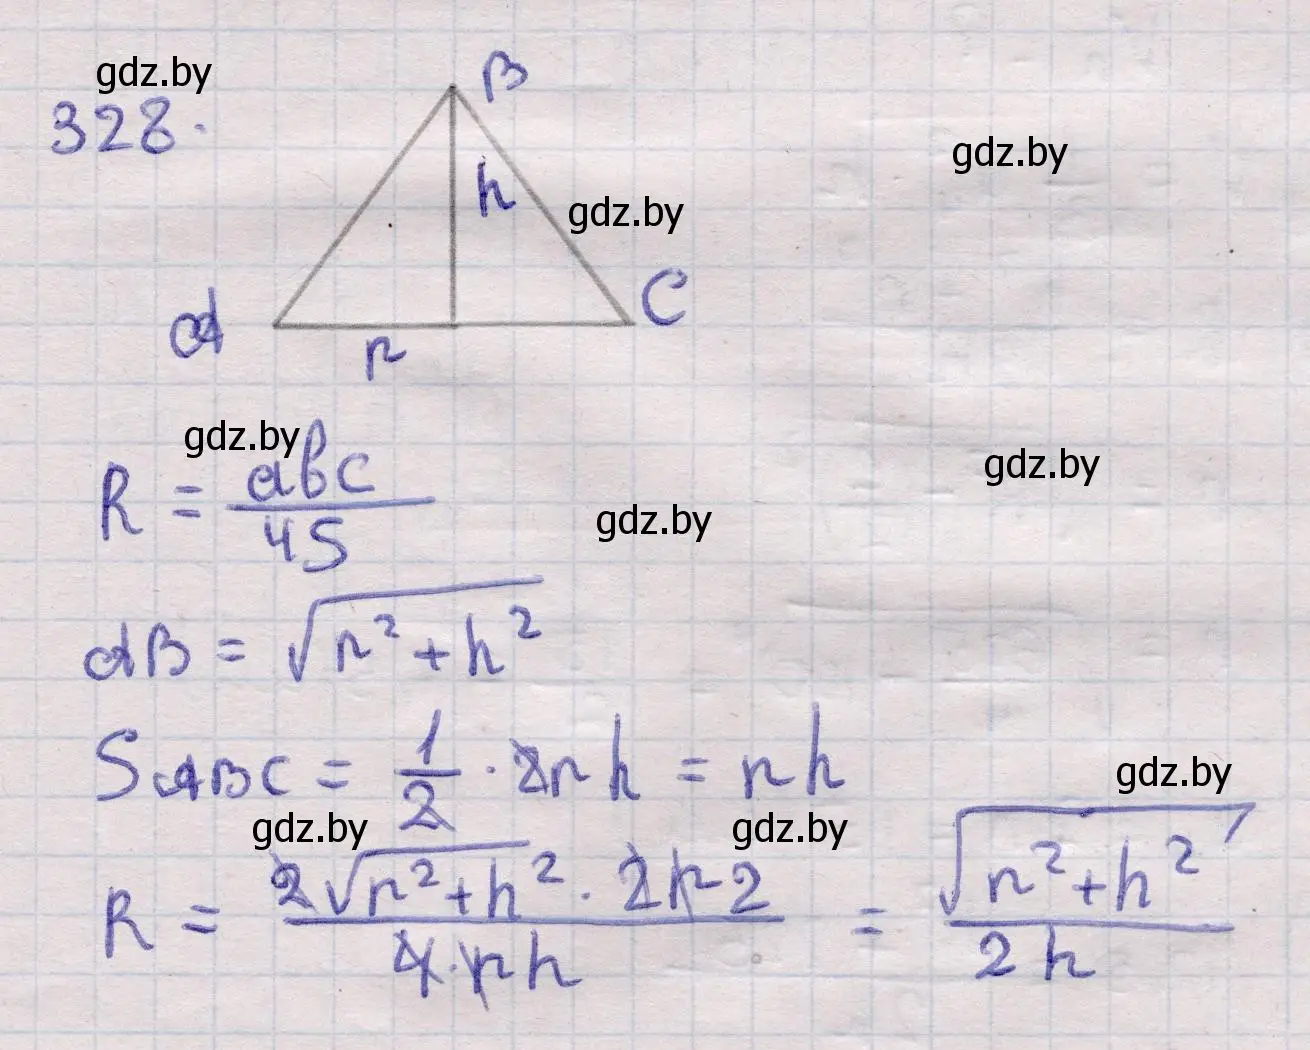 gdz.by
328.
B
gdz.by
h
gdz.by
C
A
r
gdz.by
R = abc / 4S
gdz.by
gdz.by
AB = √(r² + h²)
S ABC = 1/2 · 2rh = rh
gdz.by
gdz.by
gdz.by
R = 2√(r² + h²) · 2r 2 / 4 · rh = √(r² + h²) / 2h